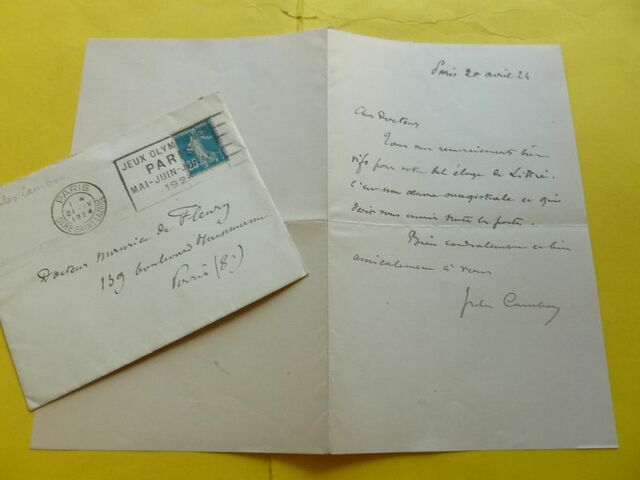 Paris 20 avril 24
Cher Docteur
Tous mes remerciements bien
vifs pour votre bel éloge de Littré.
C'est une œuvre magistrale et qui
doit vous ouvrir toutes les portes.
Bien cordialement et bien
amicalement à vous
Jules Cambon
Jules Cambon
PARIS
GARE SAINT LAZARE
1924
JEUX OLYM
PAR
MAI-JUIN-
192
25
Docteur Maurice de Fleury
139 boulevard Haussmann
Paris (8e)